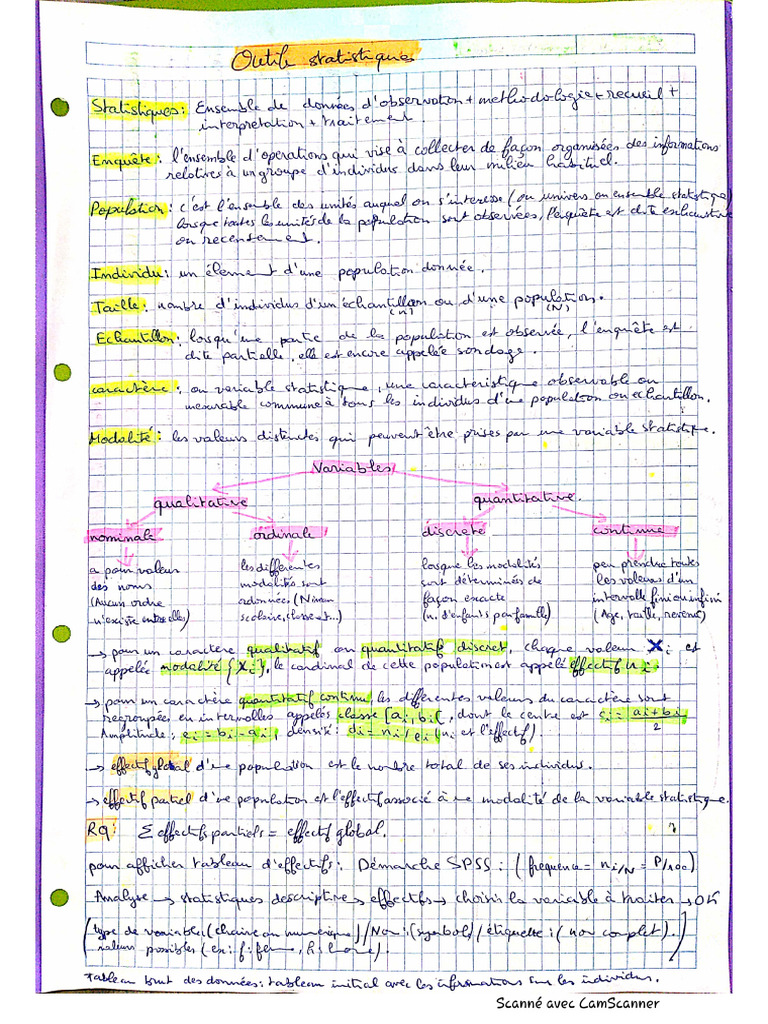 Outils statistiques
Statistiques: Ensemble de données d'observation + méthodologie + recueil +
interprétation + traitement.
Enquête: l'ensemble d'operations qui vise à collecter de façon organisées des informations
relatives à un groupe d'individus dans leur milieu habituel.
Population: c'est l'ensemble des unités auquel on s'interesse (ou univers ou ensemble statistique)
lorsque toutes les unités de la population sont observées, l'enquête est dite exhaustive
ou recensement.
Individu: un élement d'une population donnée.
Taille: nombre d'individus d'un échantillon ou d'une population.
(n) (N)
Echantillon: lorsqu'une partie de la population est observée, l'enquête est
dite partielle, elle est encore appelée sondage.
caractère: ou variable statistique, une caractéristique observable ou
mesurable commune à tous les individus d'une population ou echantillon.
Modalité: les valeurs distinctes qui peuvent être prises par une variable statistique.
Variables
qualitative quantitative
nominale ordinale discrete continue
a pour valeur les differentes lorsque les modalités peu prendre toutes
des noms modalités sont sont déterminés de les valeurs d'un
(Aucun ordre ordonnées (Niveau façon exacte intervalle fini ou infini
n'existe entre elles) scolaire, classe...) (n. d'enfants par famille) (Age, taille, revenus)
→ pour un caractère qualitatif ou quantitatif discret, chaque valeur Xi est
appelée modalité {xi}, le cardinal de cette population est appelé effectif ni.
→ pour un caractère quantitatif continu, les différentes valeurs du caractère sont
regroupées en intervalles appelés classe [ai, bi[, dont le centre est ci = ai+bi/2
Amplitude: ei = bi - ai, densité: di = ni/ei (ni est l'effectif)
→ effectif global d'une population est le nombre total de ses individus.
→ effectif partiel d'une population est l'effectif associé à une modalité de la variable statistique.
Rq: Σ effectifs partiels = effectif global.
pour afficher tableau d'effectifs: Démarche SPSS: (frequence = ni/N = P/100)
Analyse → statistiques descriptive → effectifs → choisir la variable à traiter → OK
(type de variables (chaine ou numerique) / Nom: (symbol) / étiquette: (nom complet).
valeurs possibles (ex: f: femme, h: homme).)
Tableau brut des données: tableau initial avec les informations sur les individus.
Scanné avec CamScanner